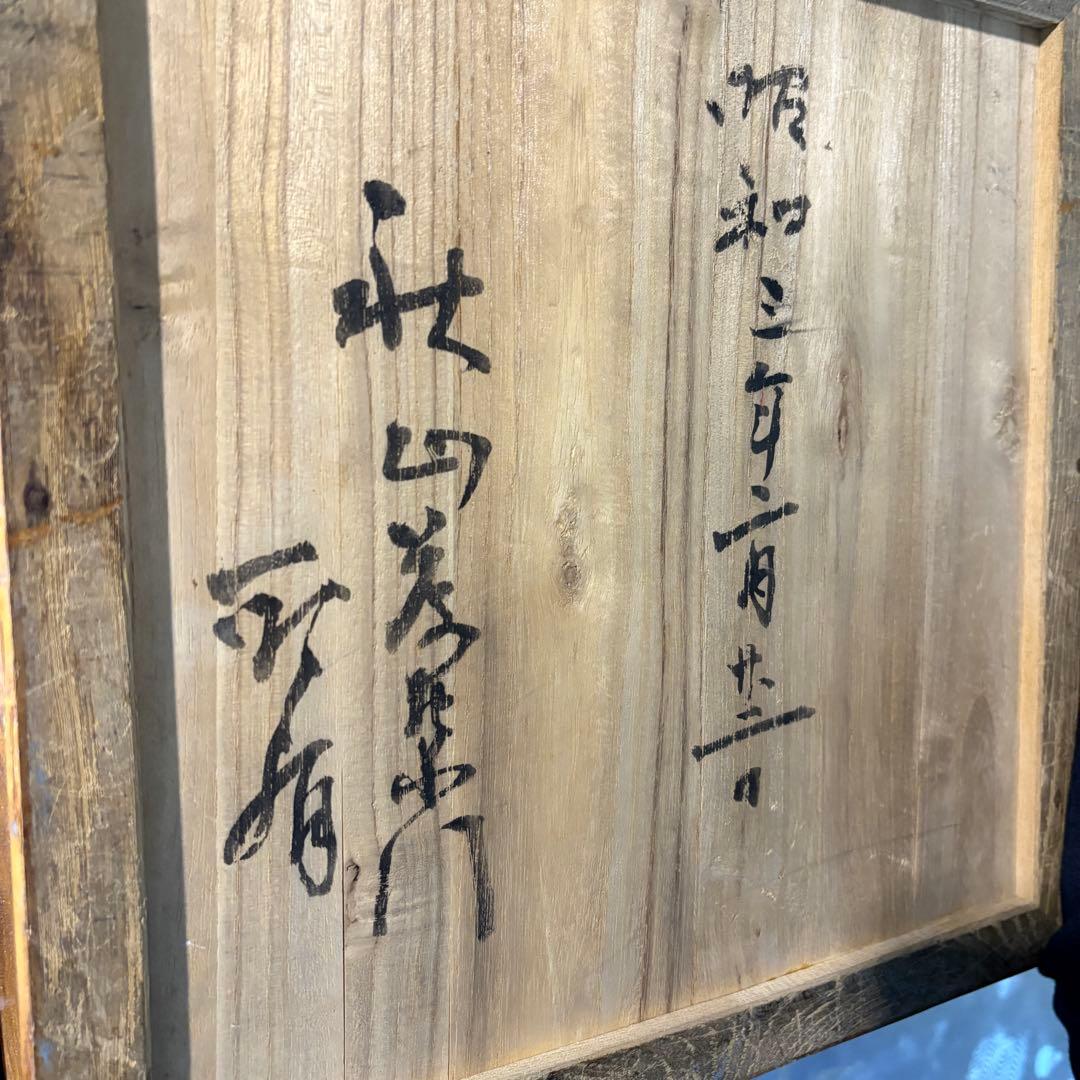 昭和三年二月廿二日
秋山門
所有